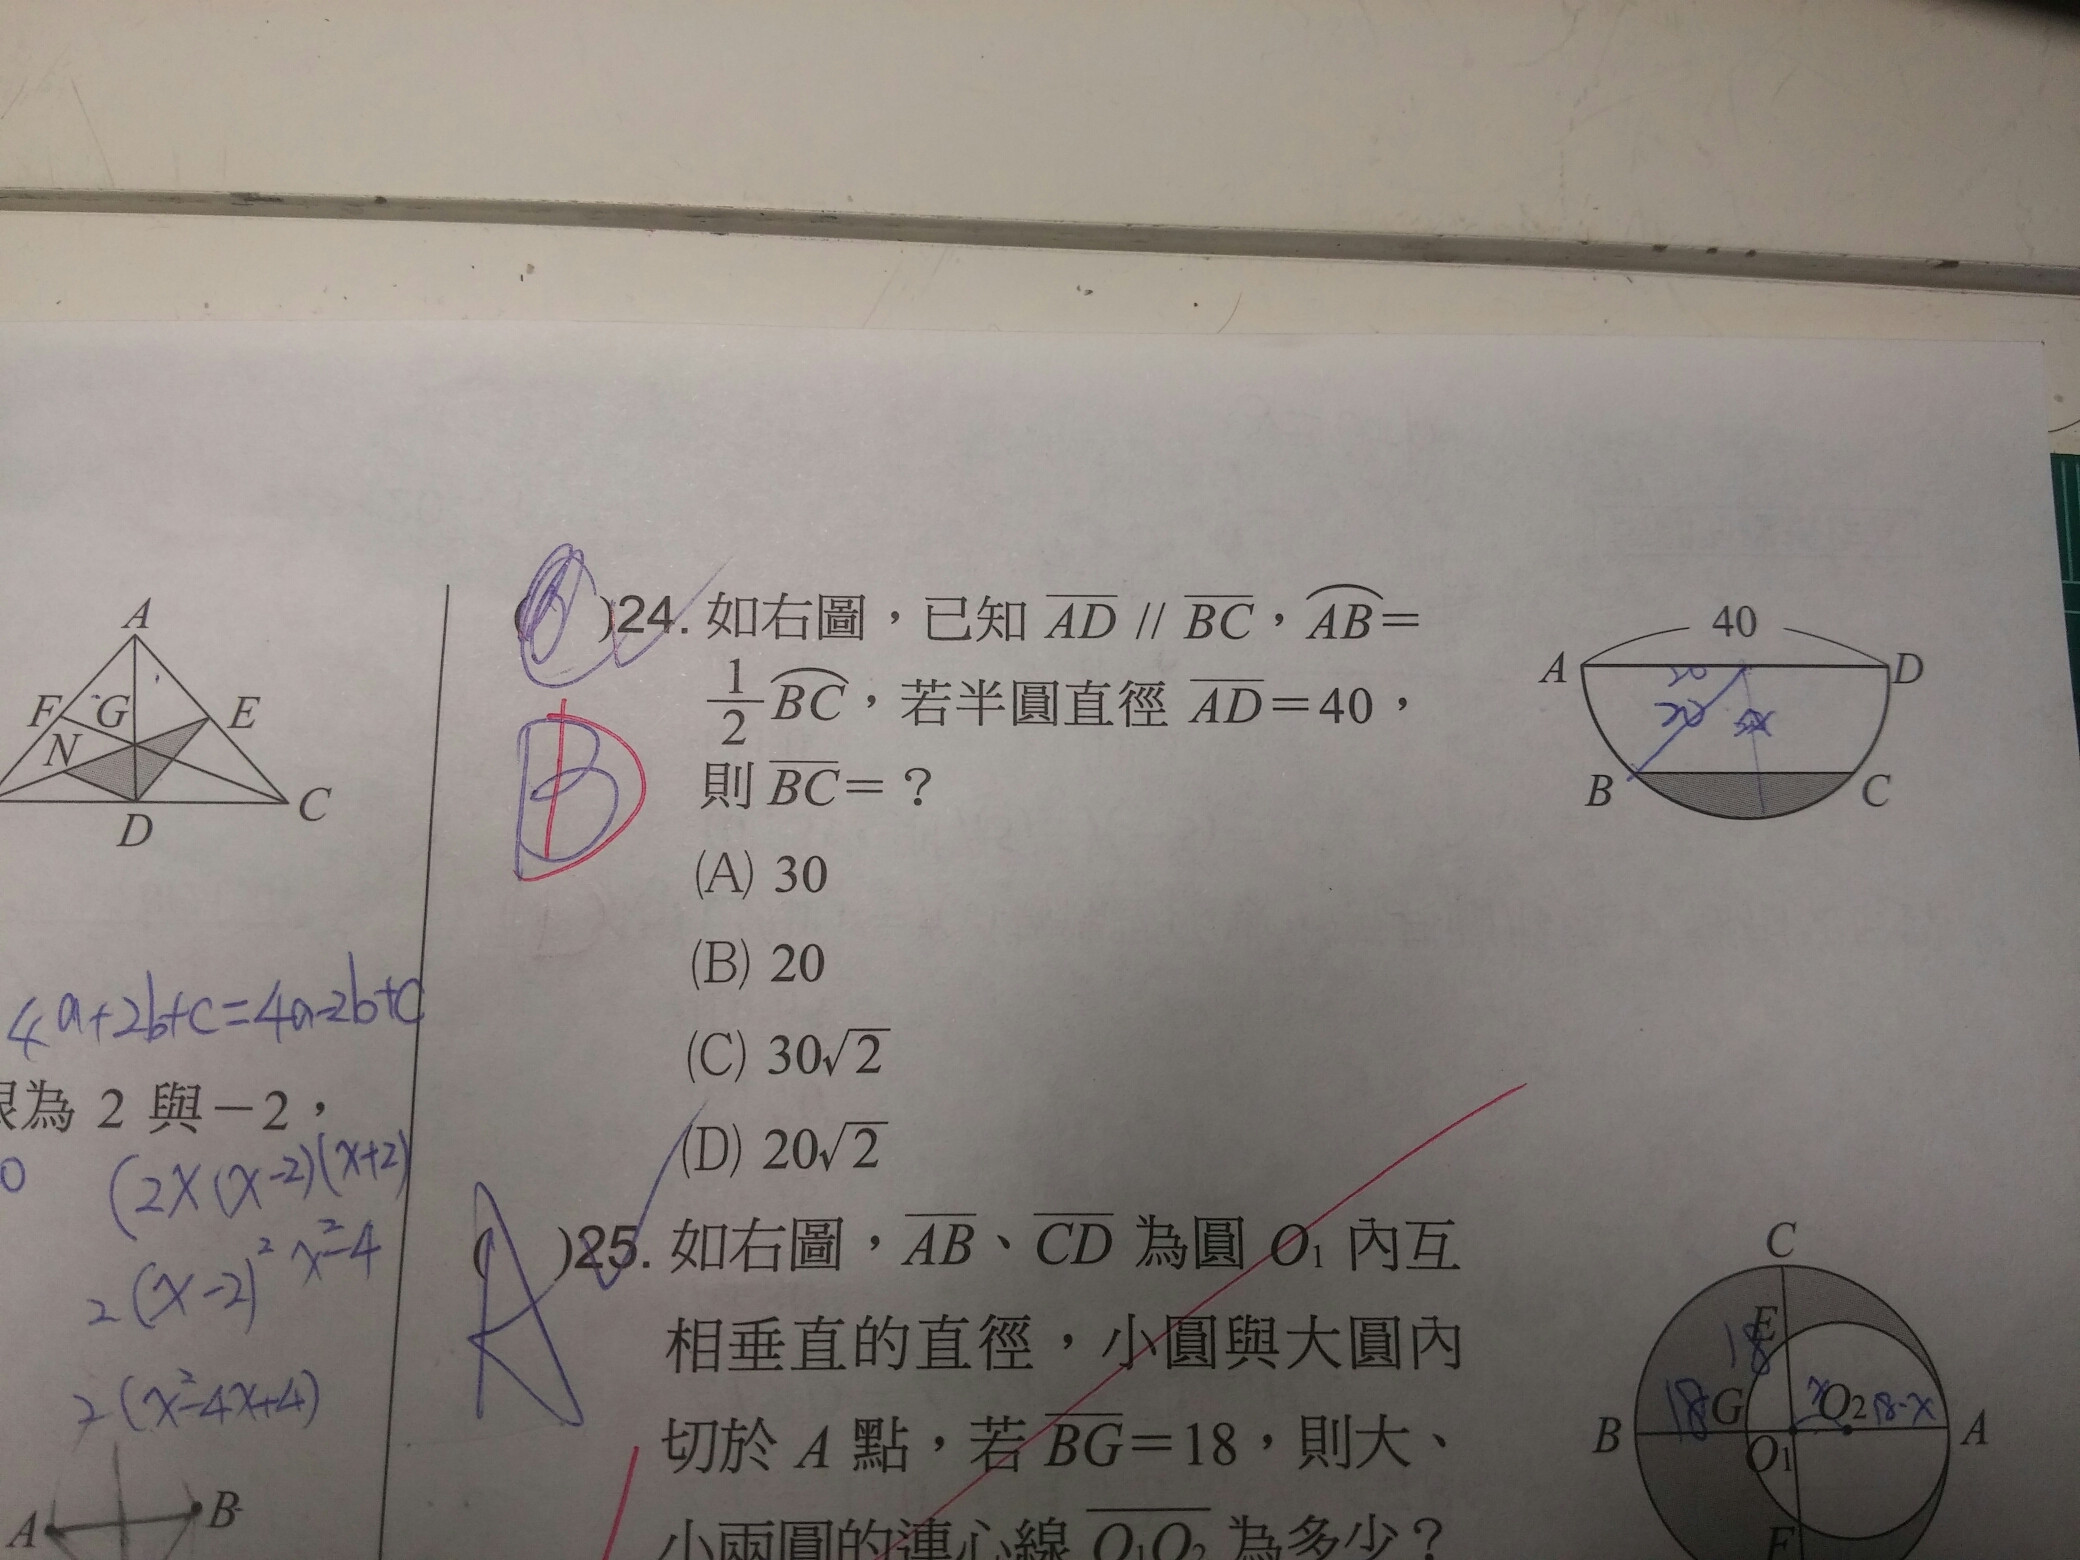 A
F
G
E
N
C
D
4a+2b+c=4a-2b+c
根為 2 與-2,
0
(2x(x-2)(x+2)
2(x-2)² x²-4
2(x²-4x+4)
A
B
B
( )24. 如右圖,已知 AD // BC,AB=
1/2 BC,若半圓直徑 AD=40,
則 BC=?
(A) 30
(B) 20
(C) 30√2
(D) 20√2
40
A
D
20
B
C
A
( )25. 如右圖,AB、CD 為圓 O₁ 內互
相垂直的直徑,小圓與大圓內
切於 A 點,若 BG=18,則大、
小兩圓的連心線 O₁O₂ 為多少?
C
E
18
18
G
x
O₂
18-x
B
O₁
A
F